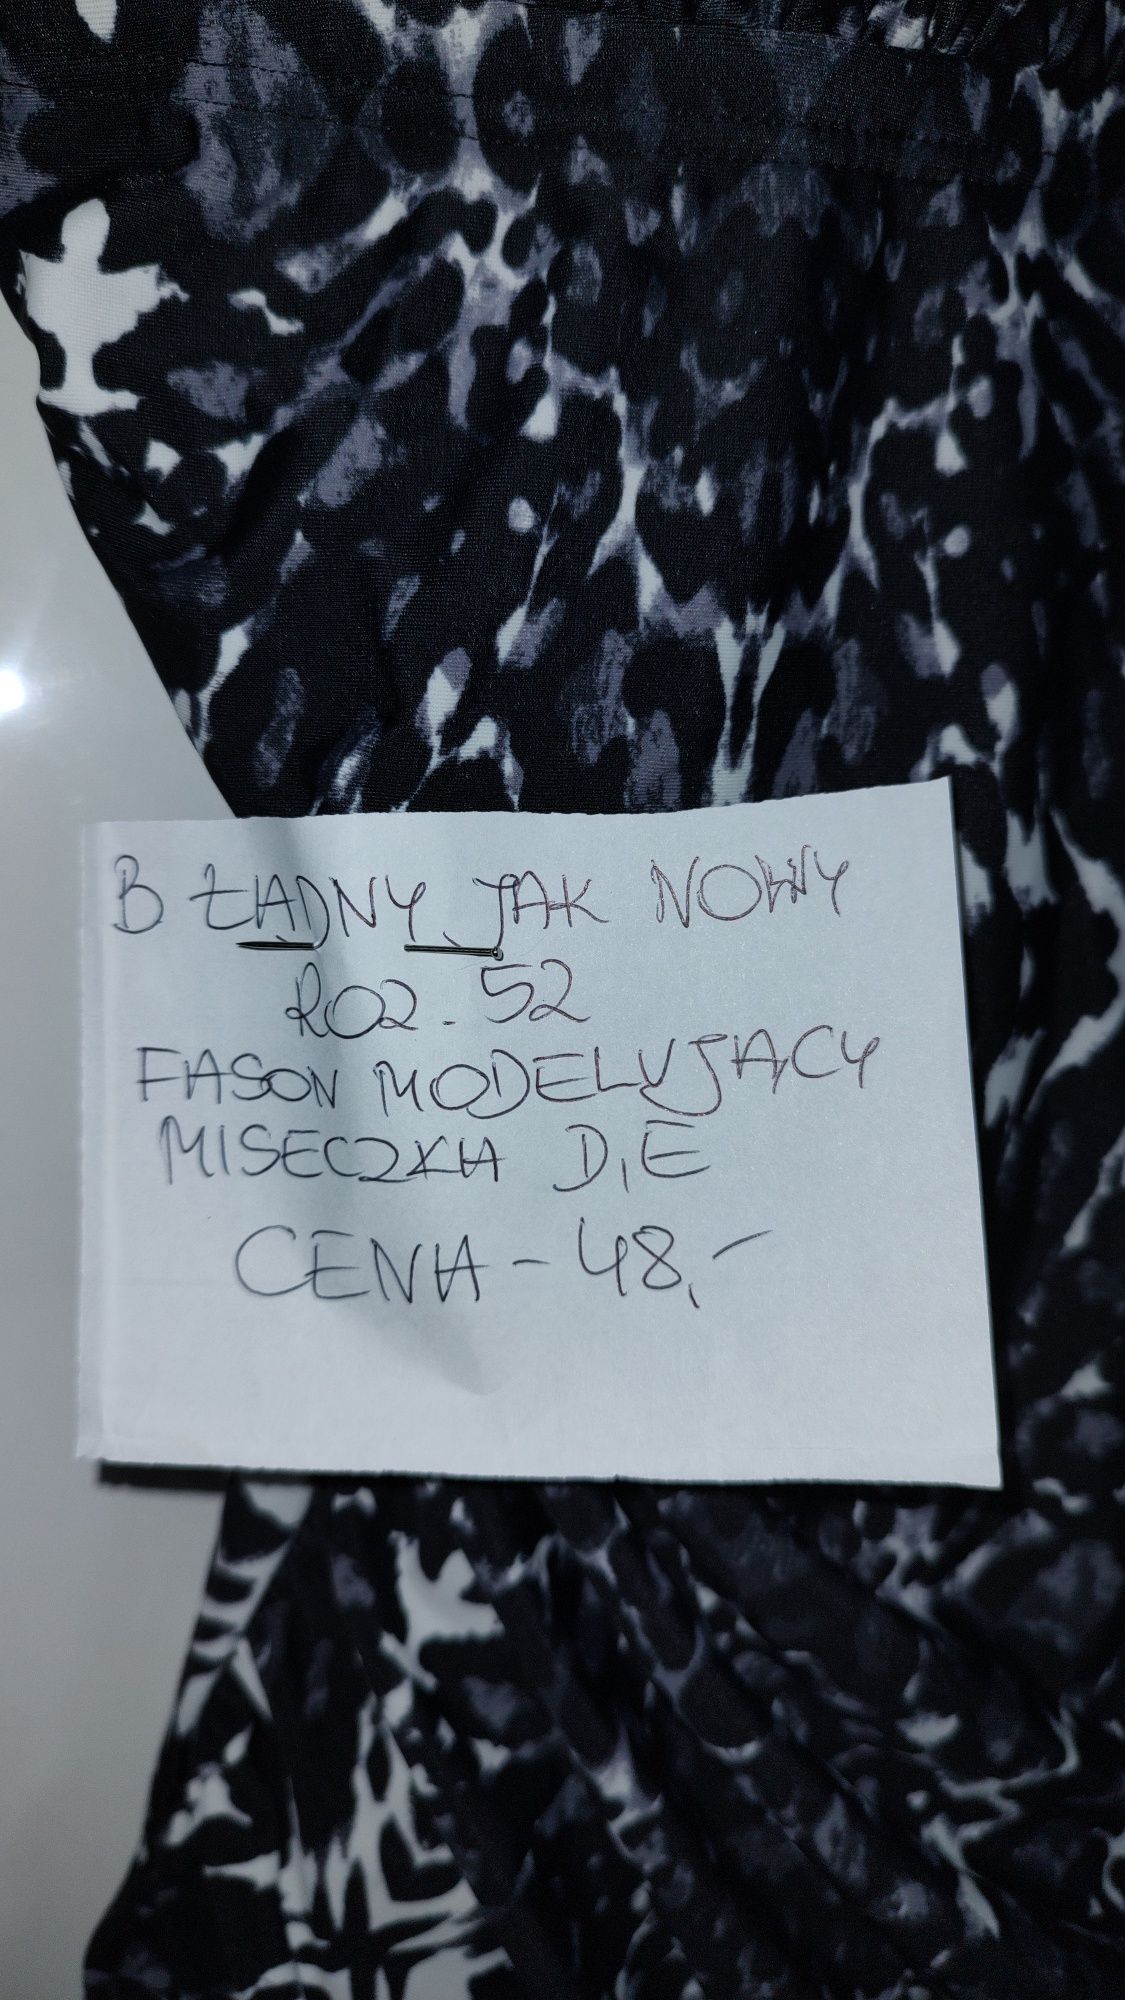 B ŁADNY JAK NOWY
ROZ. 52
FASON MODELUJĄCY
MISECZKA D, E
CENA - 48,-